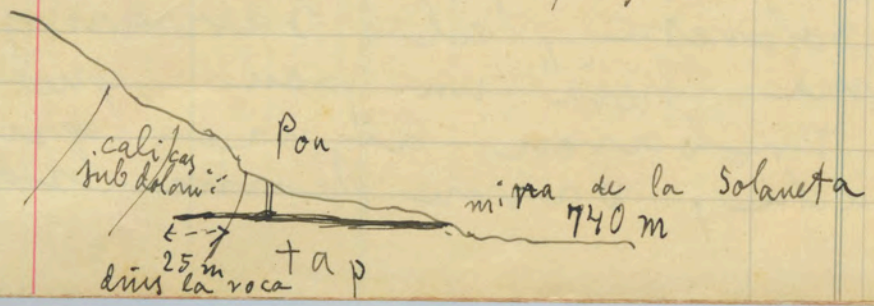 Pou
calicas
subdolomi
mina de la Solaneta
740 m
25 m
dins la roca
tap